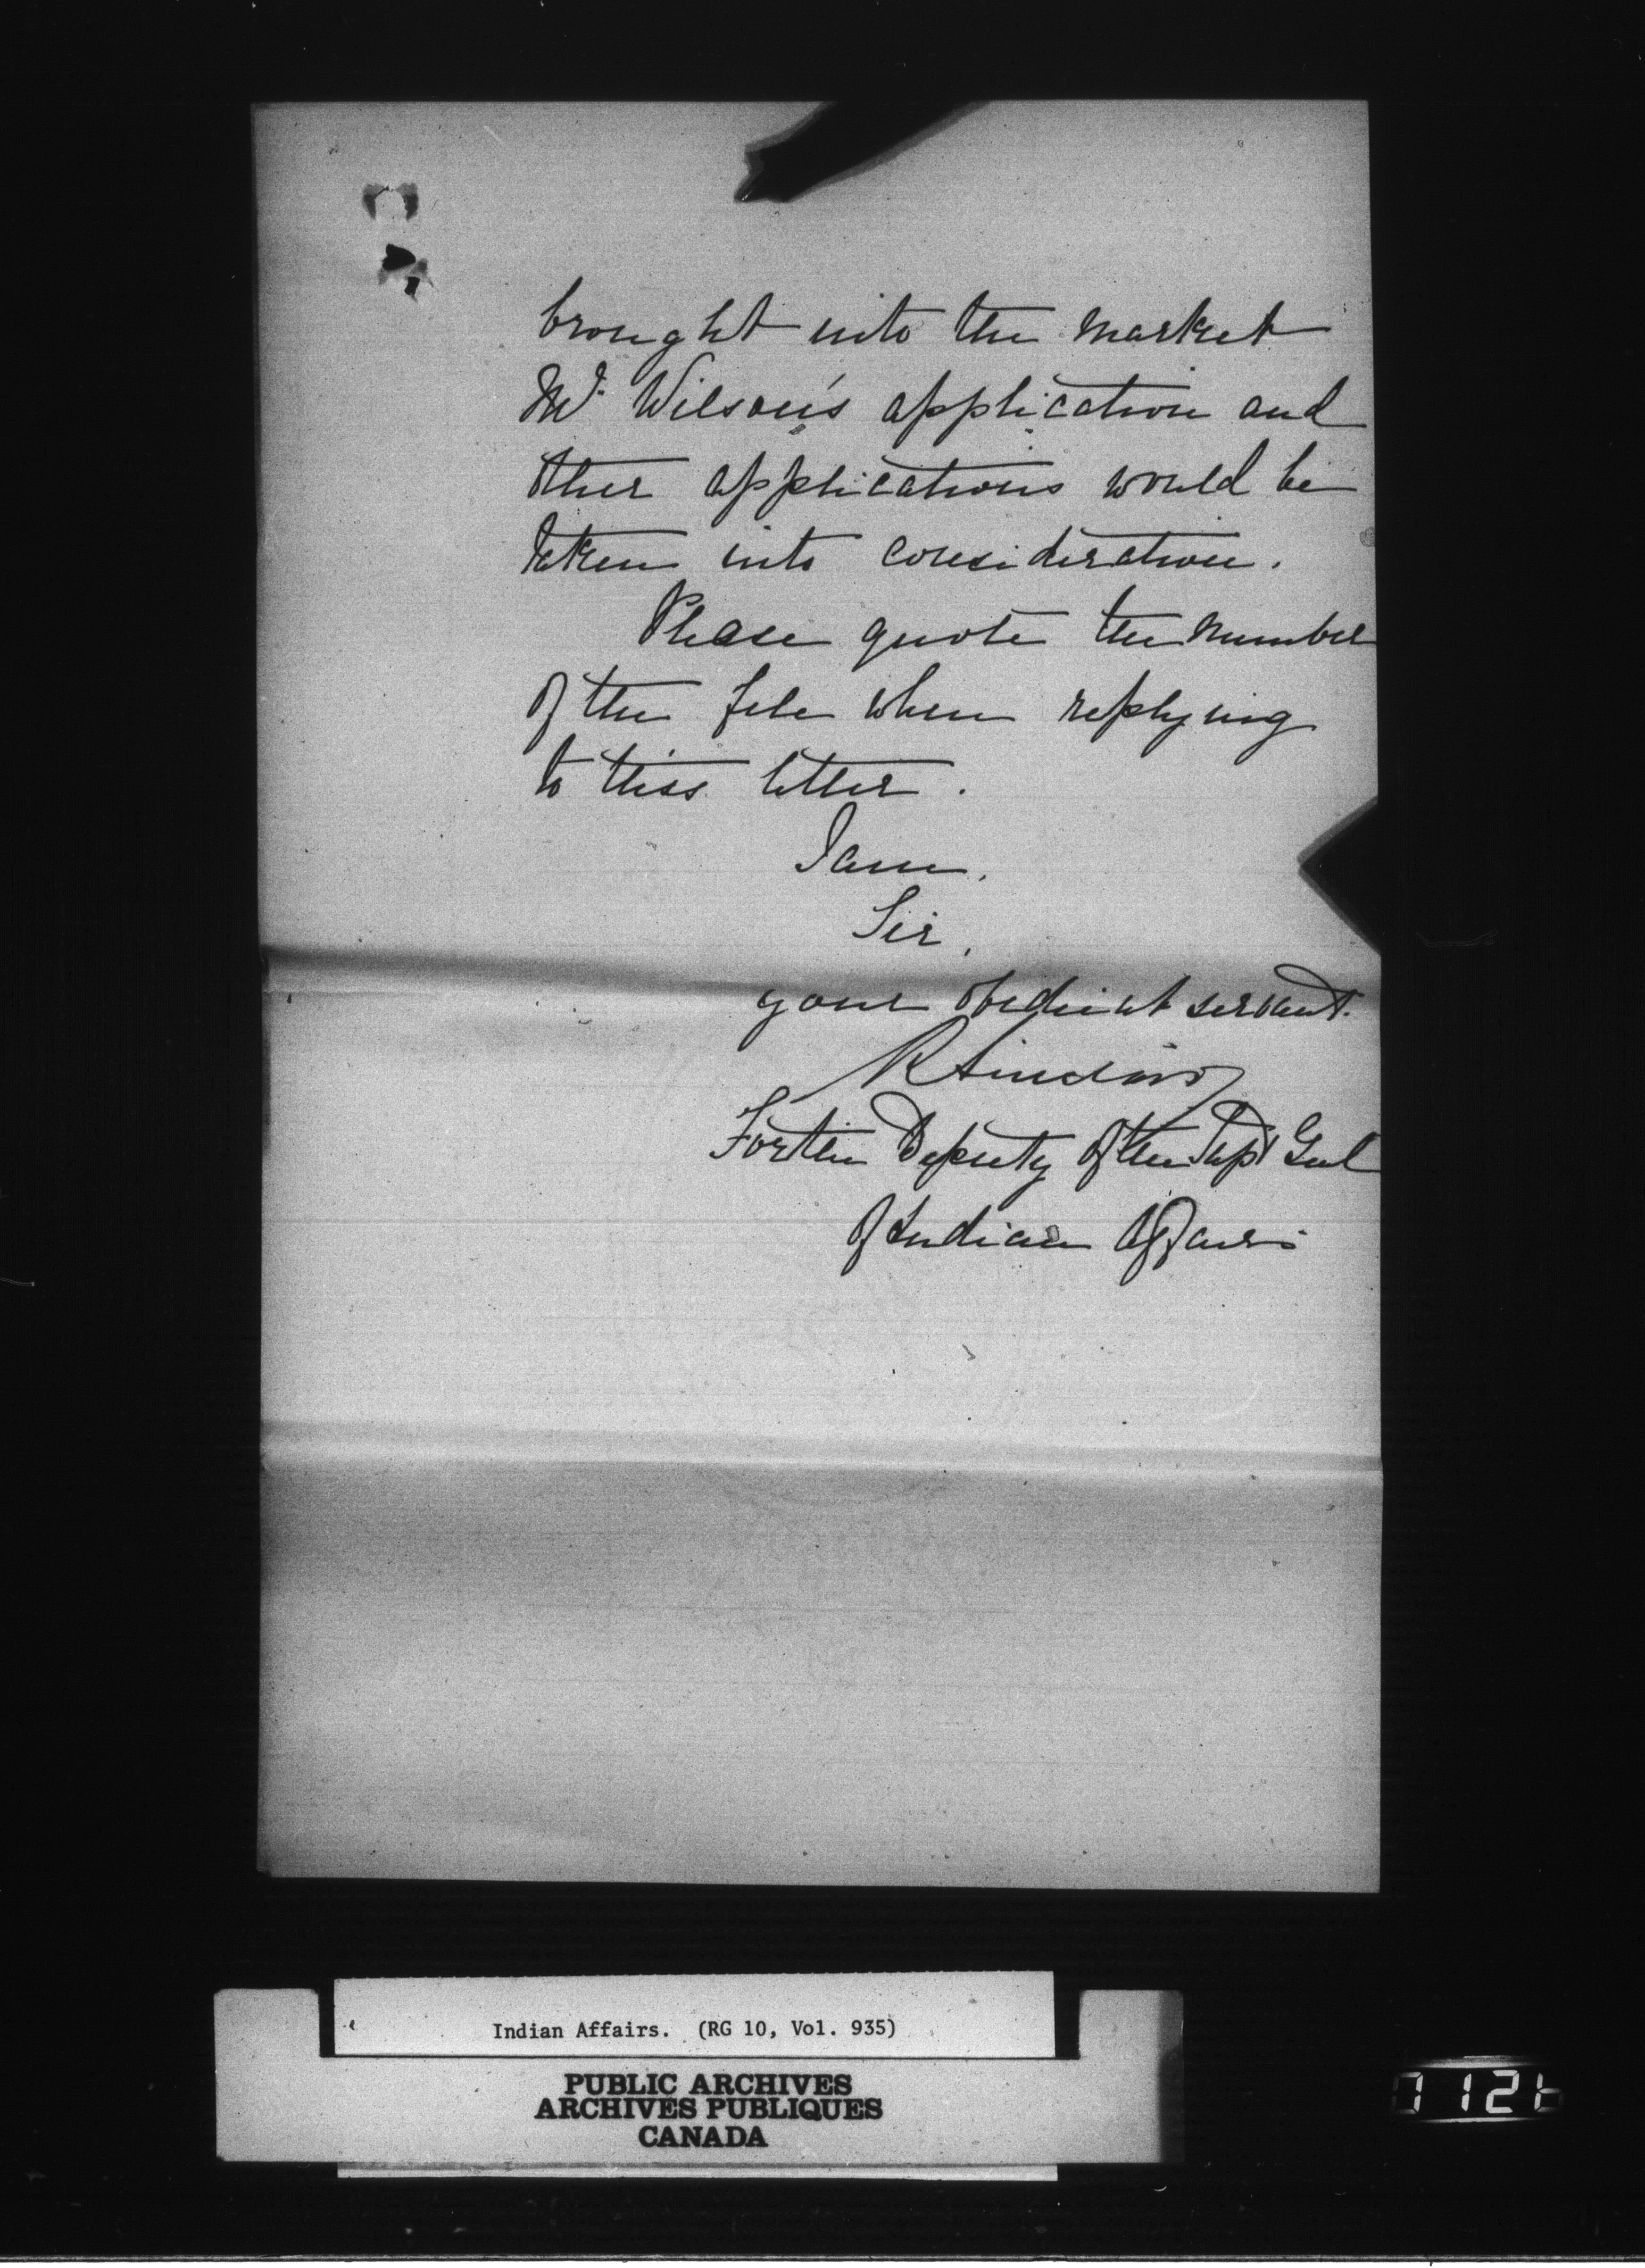 brought into the market
Mr. Wilson's application and
other applications would be
taken into consideration.
Please quote the number
of the file when replying
to this letter.
I am,
Sir,
your obedient servant.
For the Deputy of the Supt Genl
of Indian Affairs
Indian Affairs. (RG 10, Vol. 935)
PUBLIC ARCHIVES
ARCHIVES PUBLIQUES
CANADA